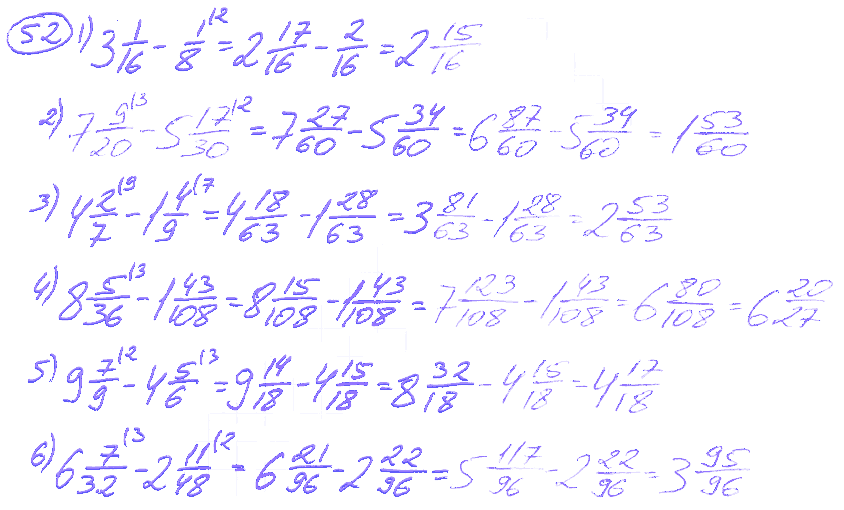 52 1) 3 1/16 - 1/8 |2 = 2 17/16 - 2/16 = 2 15/16
2) 7 9/20 |3 - 5 17/30 |2 = 7 27/60 - 5 34/60 = 6 87/60 - 5 34/60 = 1 53/60
3) 4 2/7 |9 - 1 4/9 |7 = 4 18/63 - 1 28/63 = 3 81/63 - 1 28/63 = 2 53/63
4) 8 5/36 |3 - 1 43/108 = 8 15/108 - 1 43/108 = 7 123/108 - 1 43/108 = 6 80/108 = 6 20/27
5) 9 7/9 |2 - 4 5/6 |3 = 9 14/18 - 4 15/18 = 8 32/18 - 4 15/18 = 4 17/18
6) 6 7/32 |3 - 2 11/48 |2 = 6 21/96 - 2 22/96 = 5 117/96 - 2 22/96 = 3 95/96